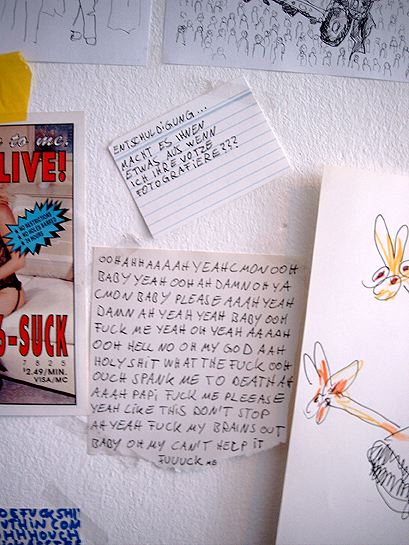 ENTSCHULDIGUNG...
MACHT ES IHNEN
ETWAS AUS WENN
ICH IHRE VOTZE
FOTOGRAFIERE???
to me.
LIVE!
NO RESTRICTIONS
NO HOLDS BARRED
24 HOURS
-SUCK
7825
$2.49/MIN.
VISA/MC
OOHAHHAAAAH YEAHCMON OOH
BABY YEAH OOH AH DAMN OH YA
CMON BABY PLEASE AAAH YEAH
DAMN AH YEAH YEAH BABY OOH
FUCK ME YEAH OH YEAH AAAAH
OOH HELL NO OH MY GOD AAH
HOLY SHIT WHAT THE FUCK OOH
OUCH SPANK ME TO DEATH AH
AAAH PAPI FUCK ME PLEEASE
YEAH LIKE THIS DON'T STOP
AH YEAH FUCK MY BRAINS OUT
BABY OH MY CAN'T HELP IT
FUUUCK ME